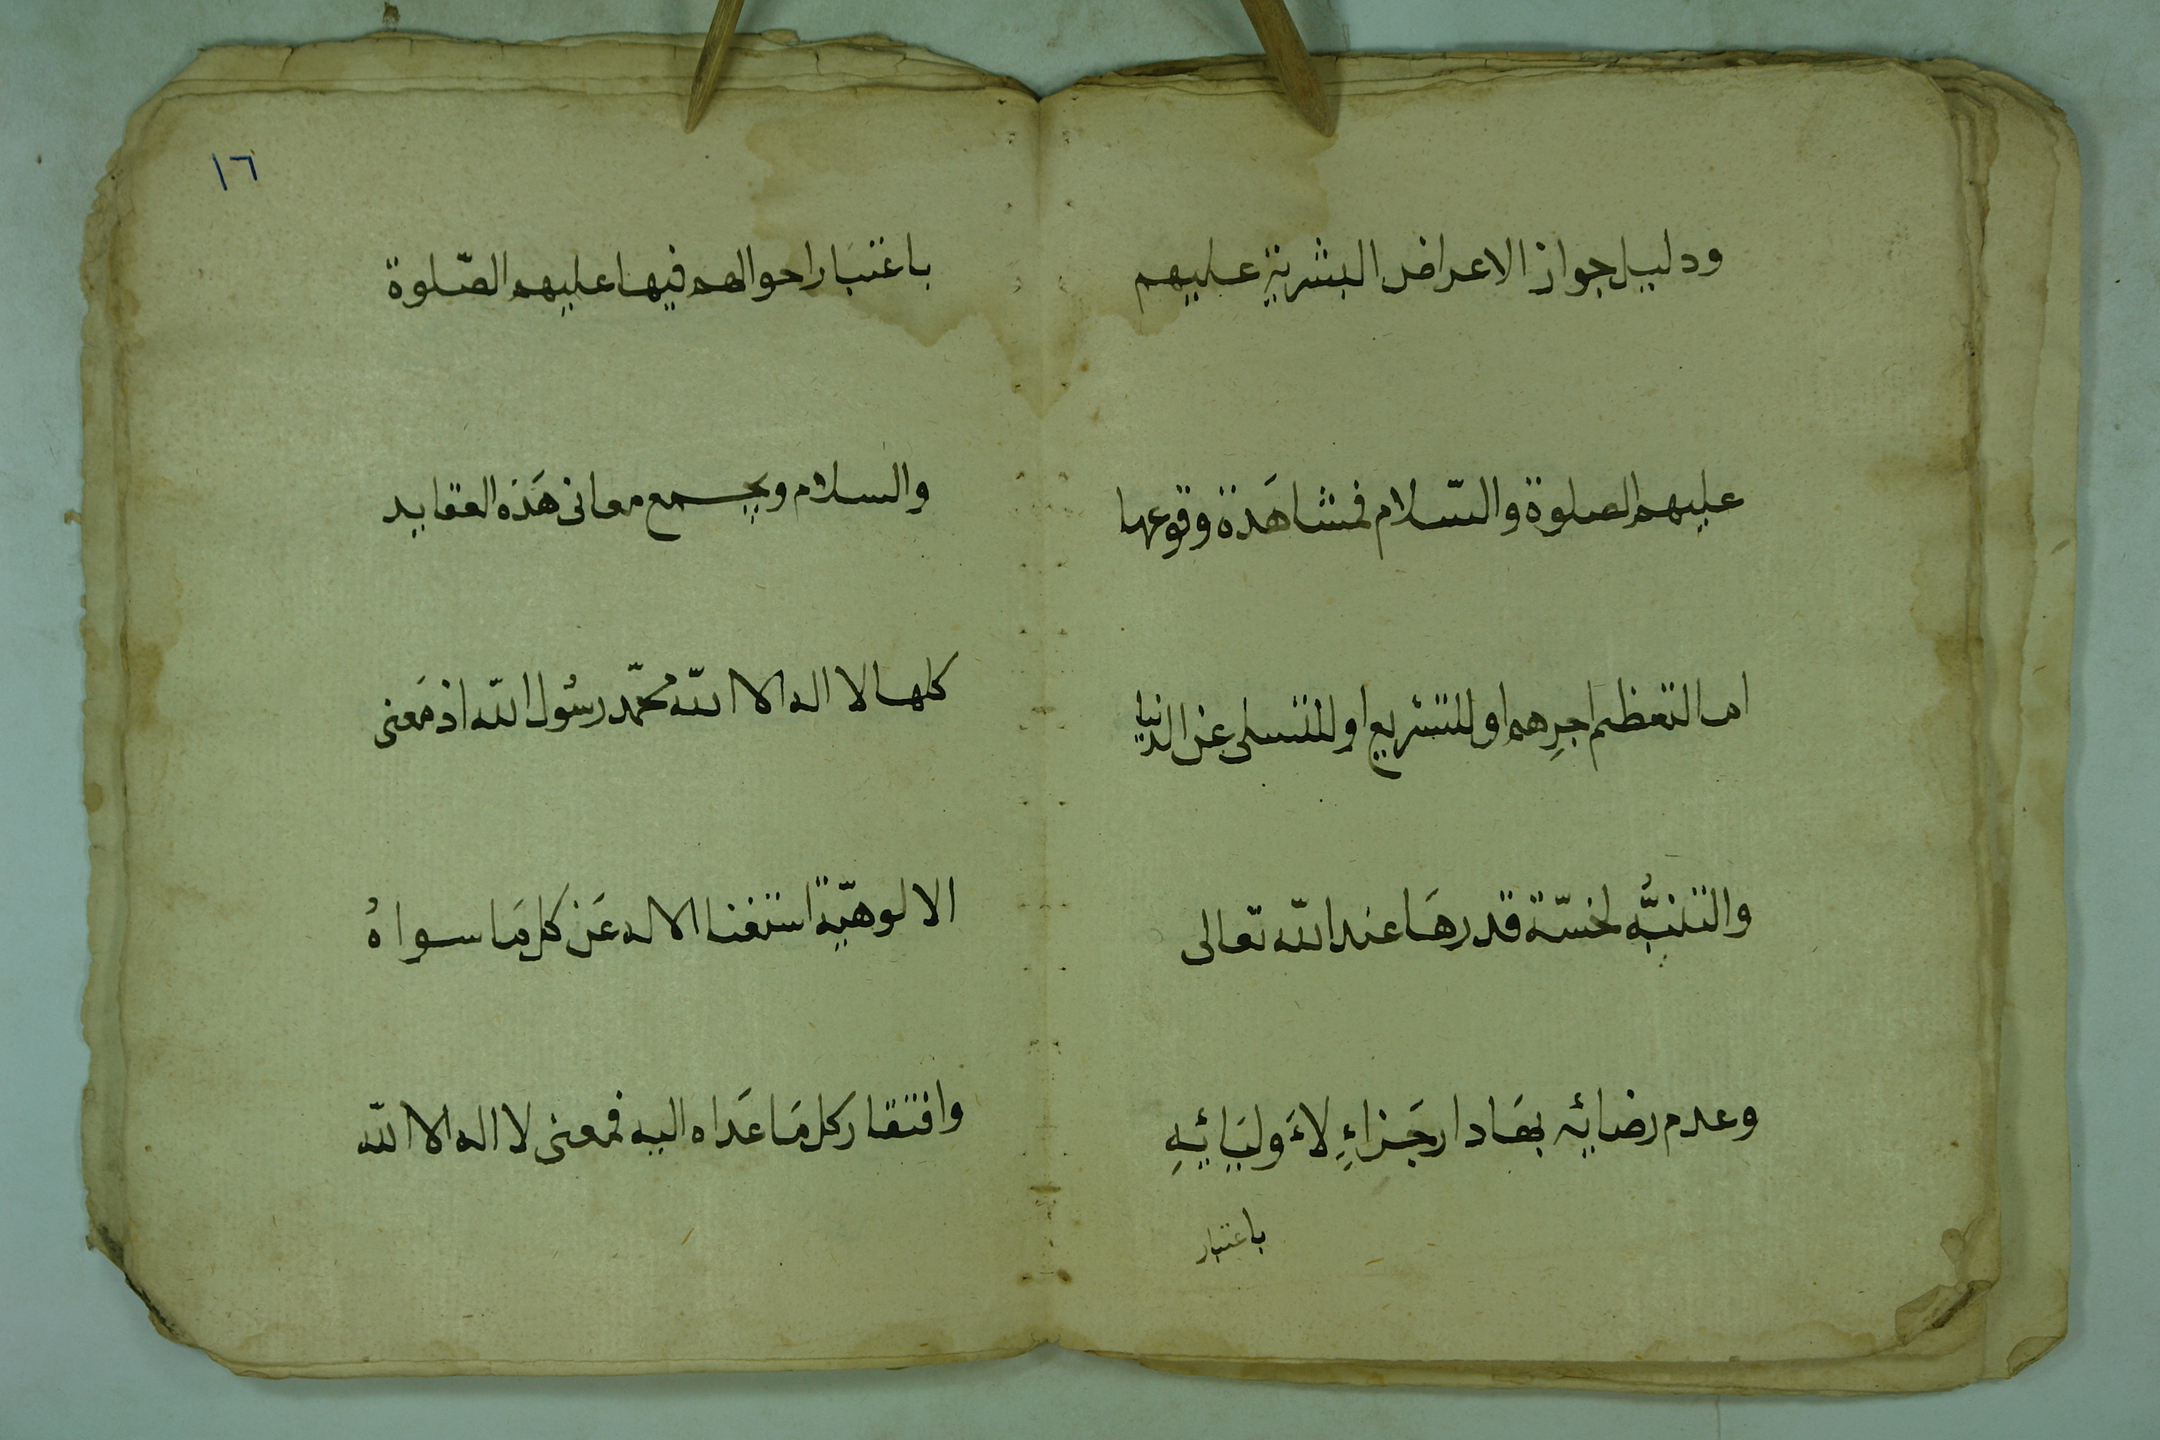 ودليل جواز الاعراض البشرية عليهم
عليهم الصلوة والسّلام فمشاهَدة وقوعها
اما لتعظيم اجرِهم او للتشريع او للتسلى عن الدنيا
والتنبُّه لخسّة قدرهَا عند اللّه تعالى
وعدم رضائه بهَا دار جَزاءٍ لاَوليَائِهِ
باعتبار
١٦
باعتبَار احوالهم فيها عليهم الصّلوة
والسلام ويجمع معانى هَذه العقايد
كلها لا اله الا اللّه محمّد رسُول اللّه اذ مَعنى
الالوهيّة استغنا الاله عَن كل مَا سواهُ
وافتقار كل مَا عَداه اليه فمعنى لا اله الا اللّه